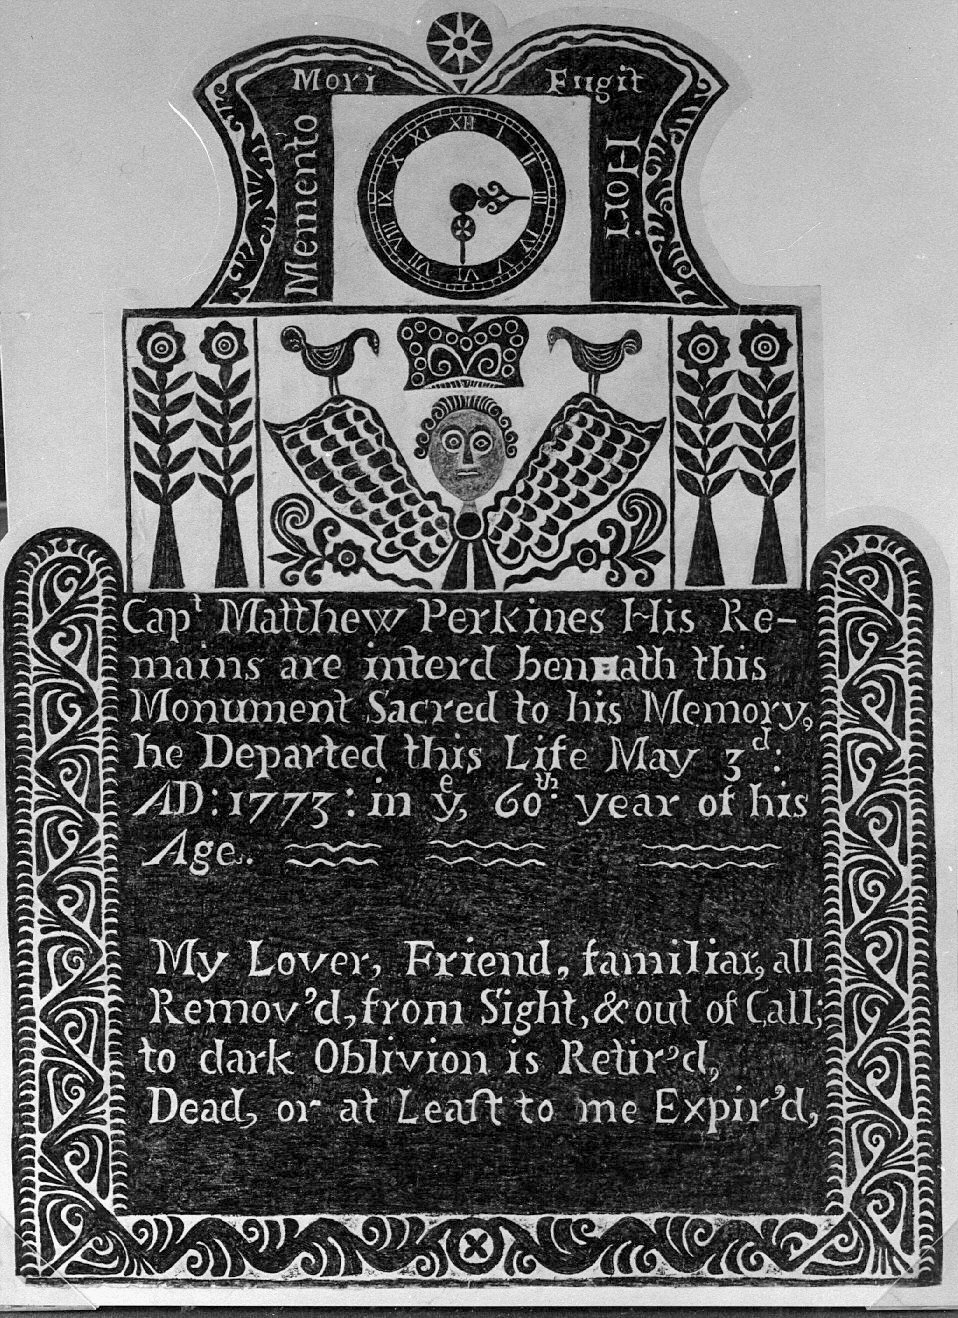 Memento
Mori
Fugit
Hori
XII
I
II
III
IV
V
VI
VII
VIII
IX
X
XI
Capt Matthew Perkines His Re-
mains are interd beneath this
Monument Sacred to his Memory,
he Departed this Life May 3d:
AD:1773: in ye, 60th: year of his
Age.
My Lover, Friend, familiar, all
Remov'd, from Sight, & out of Call;
to dark Oblivion is Retir'd,
Dead, or at Leaſt to me Expir'd,